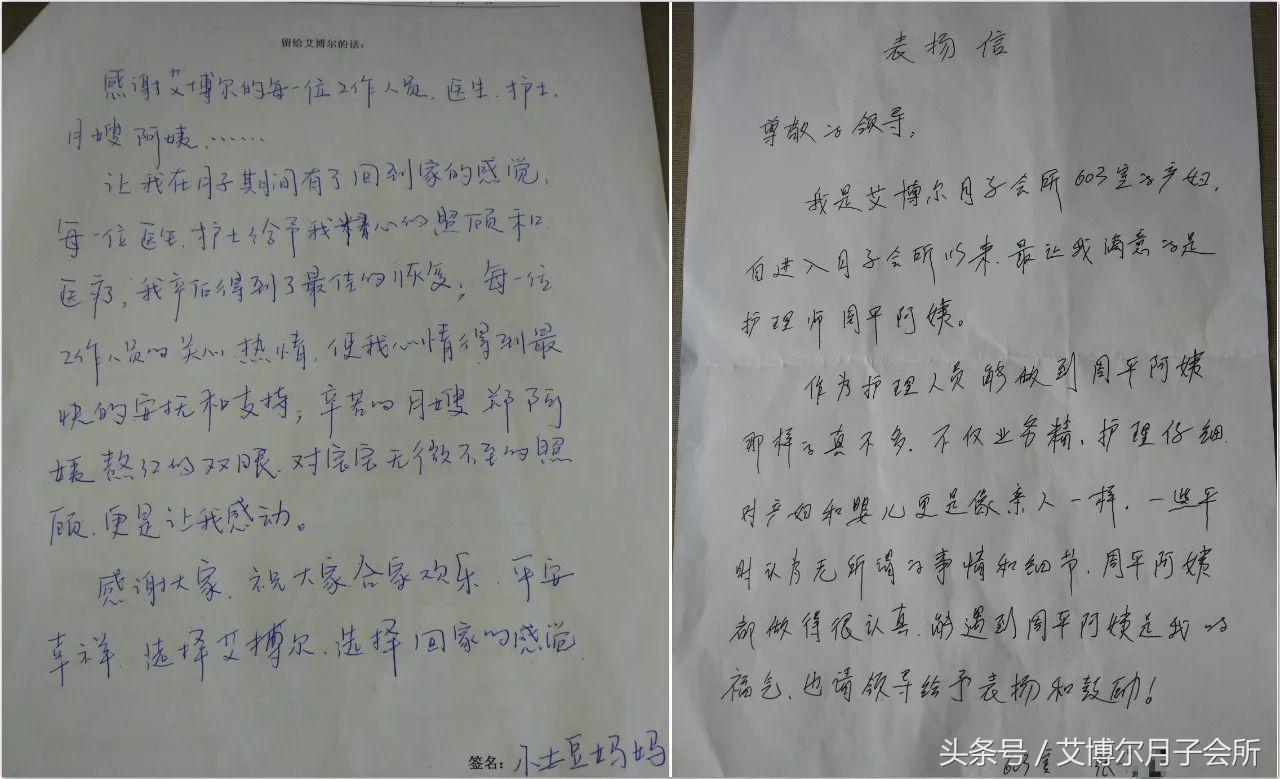 留给艾博尔的话：
感谢艾博尔的每一位工作人员、医生、护士、
月嫂阿姨、……
让我在月子期间有了回到家的感觉，
每一位医生、护士给予我精心的照顾和
医疗；我产后得到了最佳的恢复；每一位
工作人员的关心热情，使我心情得到最
快的安抚和支持；辛苦的月嫂郑阿
姨熬红的双眼、对宝宝无微不至的照
顾、更是让我感动。
感谢大家、祝大家合家欢乐 平安
幸祥、选择艾博尔、选择回家的感觉
签名：小土豆妈妈
表扬信
尊敬的领导，
我是艾博尔月子会所603室的产妇，
自进入月子会所以来、最让我满意的是
护理师周平阿姨。
作为护理人员能做到周平阿姨
那样的真不多、不仅业务精、护理仔细、
对产妇和婴儿更是像亲人一样，一些平
时认为无所谓的事情和细节，周平阿姨
都做得很认真、能遇到周平阿姨是我的
福气、也请领导给予表扬和鼓励！
603室 张
头条号／艾博尔月子会所